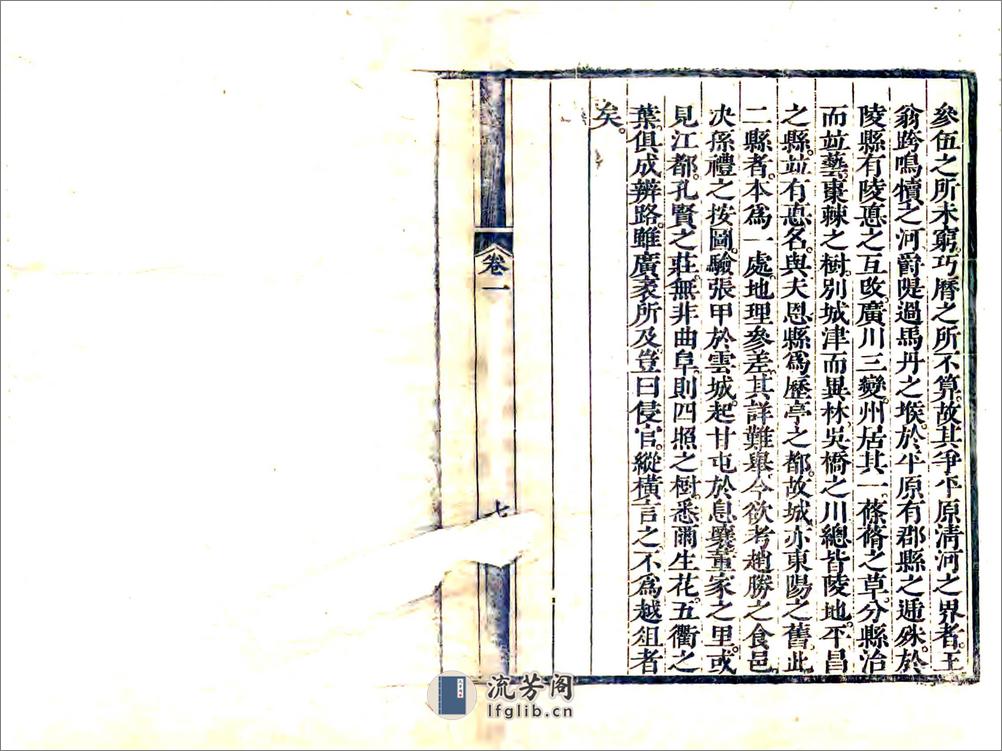 參伍之所未窮。巧曆之所不算。故其爭平原淸河之界者。王
翁跨鳴犢之河爵隄過馬丹之堠。於平原有郡縣之遞殊。於
陵縣有陵悳之互攺。廣川三變。州居其一。蓨蓚之草。分縣治
而竝藝。棗棘之樹。別城津而異林。吳橋之川總皆陵地。平昌
之縣。竝有悳名。與夫恩縣爲歷亭之都。故城亦東陽之舊。此
二縣者。本爲一處。地理參差。其詳難舉。今欲考趙勝之食邑
决孫禮之按圖。驗張甲於雲城。起甘屯於息壤。董家之里。或
見江都。孔賢之莊。無非曲阜。則四照之樹。悉爾生花。五衢之
葉。俱成辨路。雖廣袤所及。豈曰侵官。縱橫言之。不爲越俎者
矣。
卷一
流芳阁
lfglib.cn